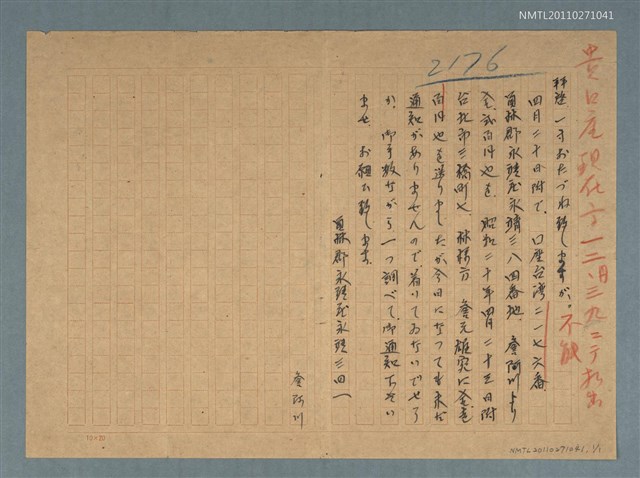 NMTL20110271041
2176
貴口座現在高一二、三九二円
不能
拝啓 一寸おたづね致しますが。
四月二十日附で、口座台湾二一七六番、
員林郡永靖庄永靖三八四番地、詹阿川より
金貳百円也を、昭和二十年四月二十三日附
台北市三橋町七、林様方 詹元雄宛に金壱
百円也を送りましたが今日になっても未だ
通知がありませんので着いてゐないでせう
か、御手数ながら一つ調べて御通知下さい
ませ、お願ひ致します。
員林郡永靖庄永靖三四一
詹阿川
10×20
NMTL20110271041 1/1